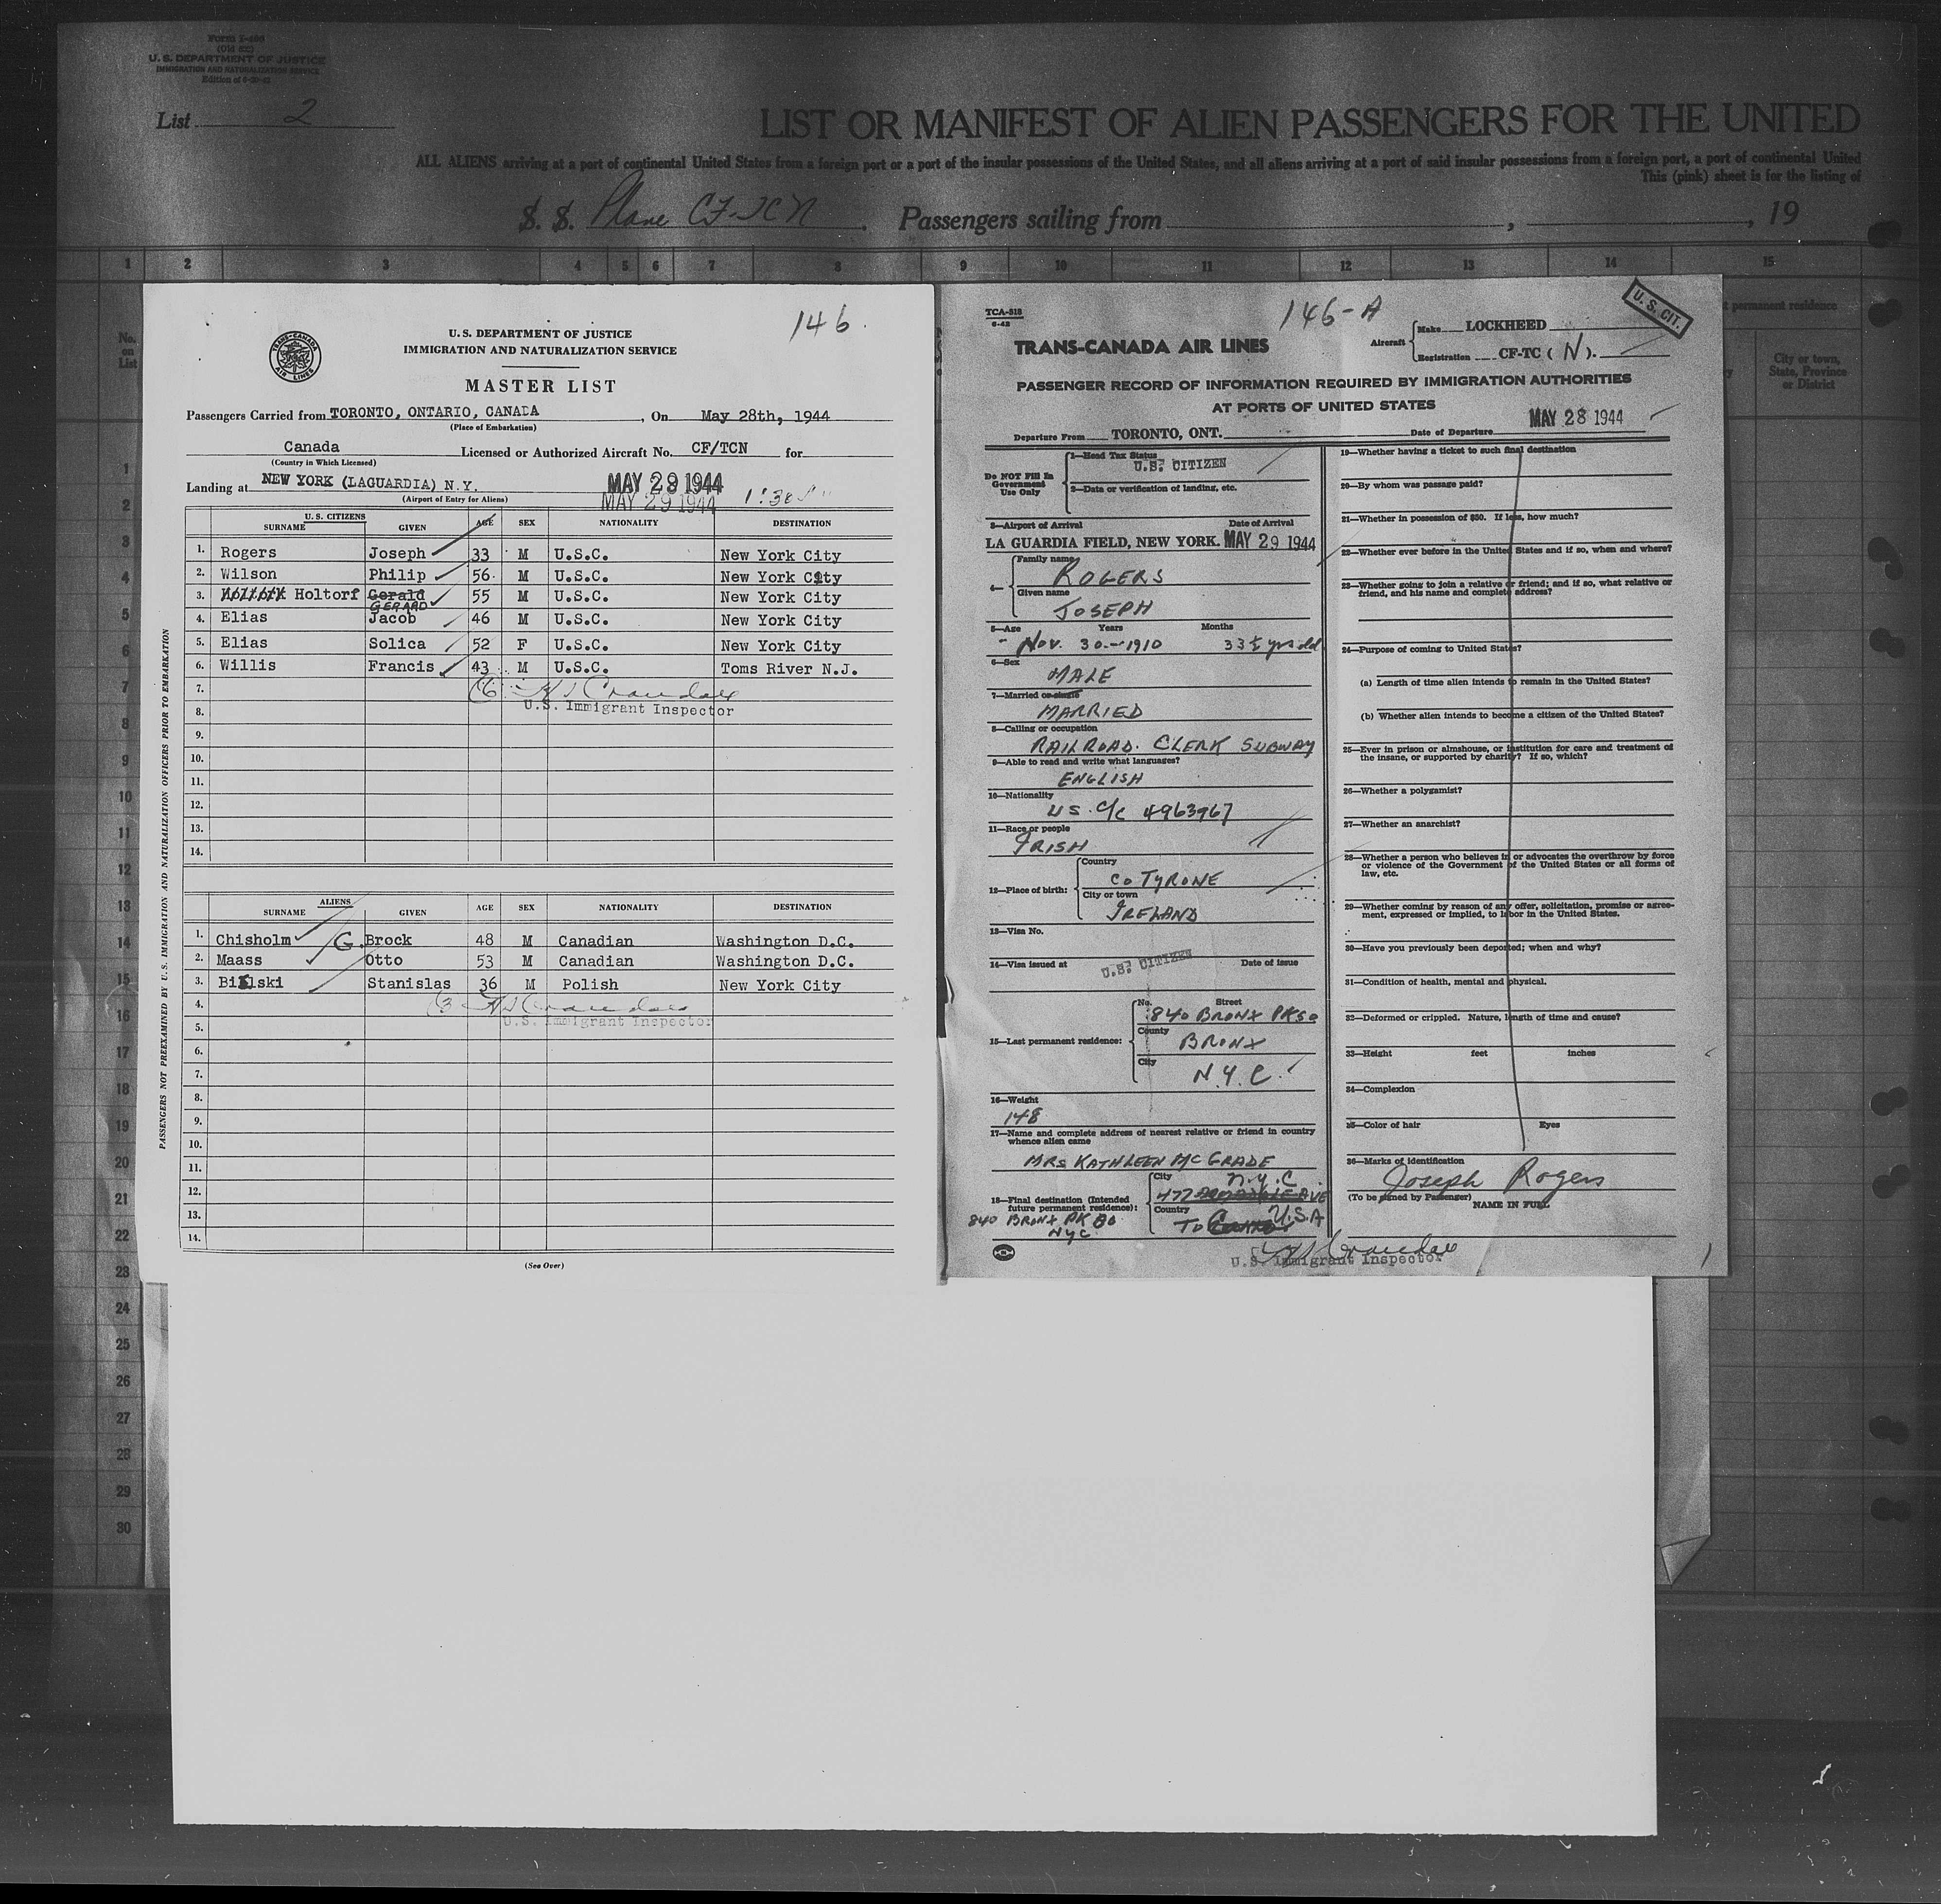 Form I-466
(Old 632)
U. S. DEPARTMENT OF JUSTICE
IMMIGRATION AND NATURALIZATION SERVICE
List 2
LIST OR MANIFEST OF ALIEN PASSENGERS FOR THE UNITED
ALL ALIENS arriving at a port of continental United States from a foreign port or a port of the insular possessions of the United States, and all aliens arriving at a port of said insular possessions from a foreign port, a port of continental United
This (pink) sheet is for the listing of
S. S. Plane CF-TCN . Passengers sailing from , , 19
1 2 3 4 5 6 7 8 9 10 11 12 13 14 15
No. on List
1
2
3
4
5
6
7
8
9
10
11
12
13
14
15
16
17
18
19
20
21
22
23
24
25
26
27
28
29
30
permanent residence
City or town,
State, Province
or District
146
TRANS-CANADA AIR LINES
U. S. DEPARTMENT OF JUSTICE
IMMIGRATION AND NATURALIZATION SERVICE
MASTER LIST
Passengers Carried from TORONTO, ONTARIO, CANADA , On May 28th, 1944
(Place of Embarkation)
Canada Licensed or Authorized Aircraft No. CF/TCN for
(Country in Which Licensed)
Landing at NEW YORK (LAGUARDIA) N.Y. MAY 29 1944
(Airport of Entry for Aliens) MAY 29 1944
U. S. CITIZENS
SURNAME GIVEN AGE SEX NATIONALITY DESTINATION
1. Rogers Joseph 33 M U.S.C. New York City
2. Wilson Philip 56 M U.S.C. New York City
3. Holtorf Gerald 55 M U.S.C. New York City
GERARD
4. Elias Jacob 46 M U.S.C. New York City
5. Elias Solica 52 F U.S.C. New York City
6. Willis Francis 43 M U.S.C. Toms River N.J.
7. (6)
8. U.S. Immigrant Inspector
9.
10.
11.
12.
13.
14.
ALIENS
SURNAME GIVEN AGE SEX NATIONALITY DESTINATION
1. Chisholm G. Brock 48 M Canadian Washington D.C.
2. Maass Otto 53 M Canadian Washington D.C.
3. Bielski Stanislas 36 M Polish New York City
4. (3
5. U.S. Immigrant Inspector
6.
7.
8.
9.
10.
11.
12.
13.
14.
(See Over)
PASSENGERS NOT PREEXAMINED BY U. S. IMMIGRATION AND NATURALIZATION OFFICERS PRIOR TO EMBARKATION
TCA-518
6-42
146-A
U. S. CIT.
TRANS-CANADA AIR LINES
Aircraft Make LOCKHEED
Registration CF-TC ( N ).
PASSENGER RECORD OF INFORMATION REQUIRED BY IMMIGRATION AUTHORITIES
AT PORTS OF UNITED STATES
Departure From TORONTO, ONT. Date of Departure MAY 28 1944
Do NOT Fill In
Government
Use Only
1—Head Tax Status
U.S. CITIZEN
2—Date or verification of landing, etc.
3—Airport of Arrival Date of Arrival
LA GUARDIA FIELD, NEW YORK. MAY 29 1944
4—
Family name
ROGERS
Given name
JOSEPH
5—Age Years Months
Nov. 30.—1910 33½ yrs old
6—Sex
MALE
7—Married or single
MARRIED
8—Calling or occupation
RAILROAD. CLERK SUBWAY
9—Able to read and write what languages?
ENGLISH
10—Nationality
US. C/C 4963967
11—Race or people
IRISH
12—Place of birth:
Country
CO TYRONE
City or town
IRELAND
13—Visa No.
14—Visa issued at U.S. CITIZEN Date of issue
15—Last permanent residence:
No. Street
840 BRONX PK So
County
BRONX
City
N.Y.C.
16—Weight
148
17—Name and complete address of nearest relative or friend in country
whence alien came
MRS KATHLEEN MC GRADE
18—Final destination (Intended
future permanent residence):
840 BRONX PK SO
NYC
City N.Y.C
477 AVE
Country U.S.A
TO
19—Whether having a ticket to such final destination
20—By whom was passage paid?
21—Whether in possession of $50. If less, how much?
22—Whether ever before in the United States and if so, when and where?
23—Whether going to join a relative or friend; and if so, what relative or
friend, and his name and complete address?
24—Purpose of coming to United States?
(a) Length of time alien intends to remain in the United States?
(b) Whether alien intends to become a citizen of the United States?
25—Ever in prison or almshouse, or institution for care and treatment of
the insane, or supported by charity? If so, which?
26—Whether a polygamist?
27—Whether an anarchist?
28—Whether a person who believes in or advocates the overthrow by force
or violence of the Government of the United States or all forms of
law, etc.
29—Whether coming by reason of any offer, solicitation, promise or agree-
ment, expressed or implied, to labor in the United States.
30—Have you previously been deported; when and why?
31—Condition of health, mental and physical.
32—Deformed or crippled. Nature, length of time and cause?
33—Height feet inches
34—Complexion
35—Color of hair Eyes
36—Marks of identification
Joseph Rogers
(To be signed by Passenger) NAME IN FULL
U.S. Immigrant Inspector